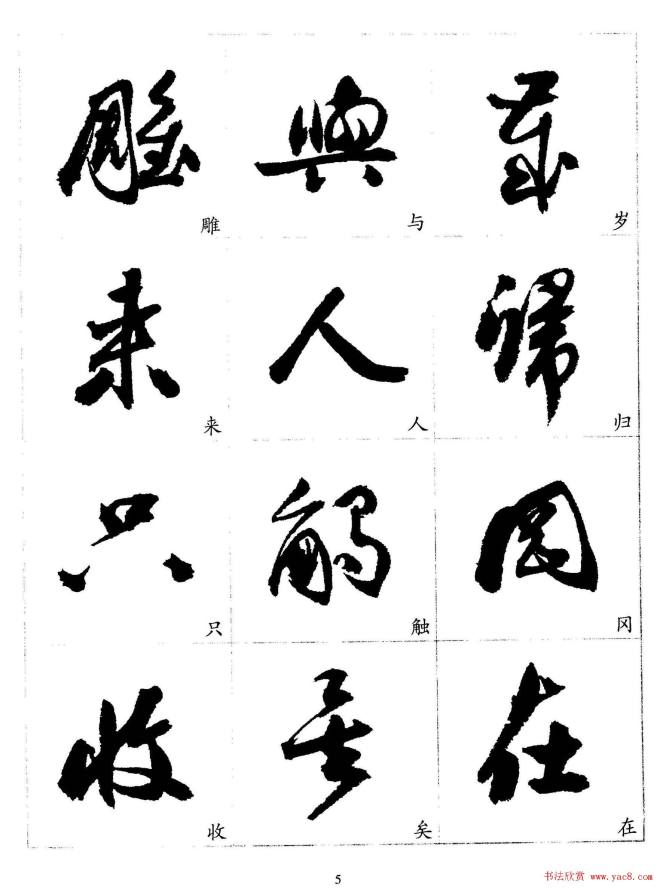 雕 與 歲
雕 与 岁
来 人 歸
来 人 归
只 觸 岡
只 触 冈
收 矣 在
收 矣 在
5
书法欣赏 www.yac8.com